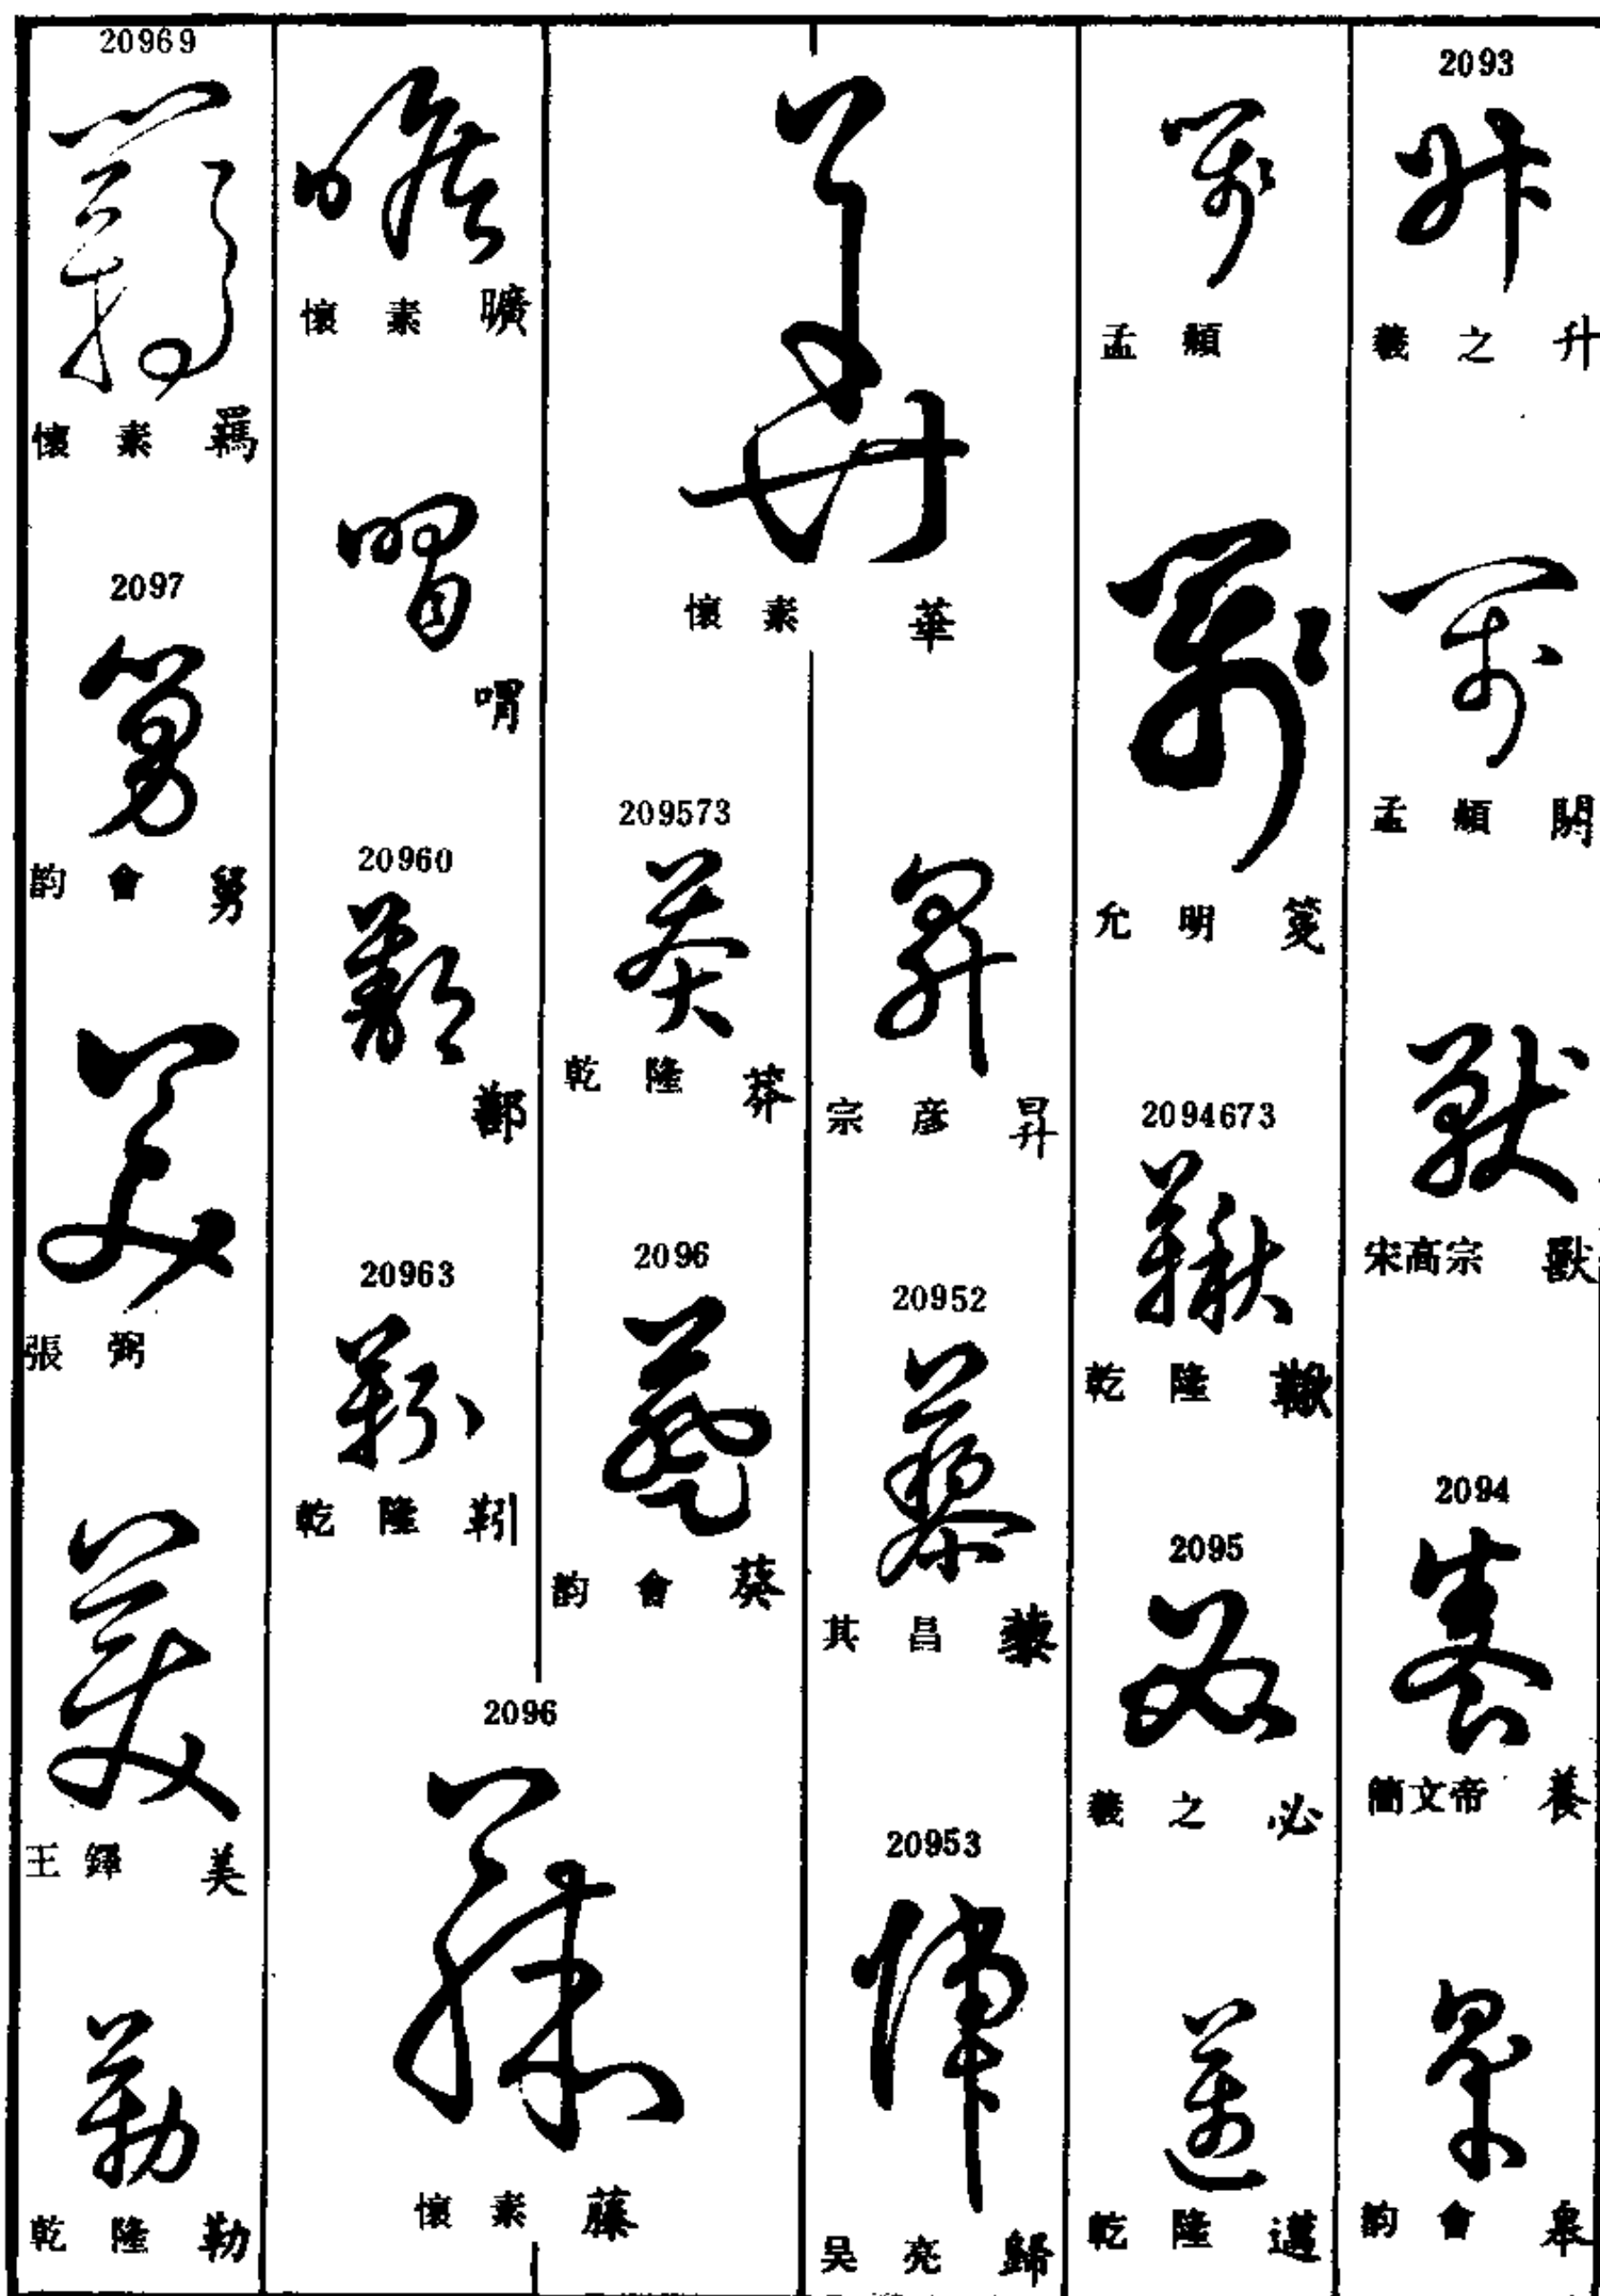 2093
羲之 升
孟頫 闊
宋高宗 獸
2094
簡文帝 養
韵會 皋
孟頫
允明 箋
2094673
乾隆
2095
羲之 必
乾隆 邁
懷素 華
宗彦 昇
20952
其昌 藜
20953
吴亮 歸
209573
乾隆 莽
2096
韵會 葵
2096
懷素 藤
懷素 曠
喟
20960
鄱
20963
乾隆 靷
20969
懷素 羈
2097
韵會 舅
張弼
王鐸 美
乾隆 勒